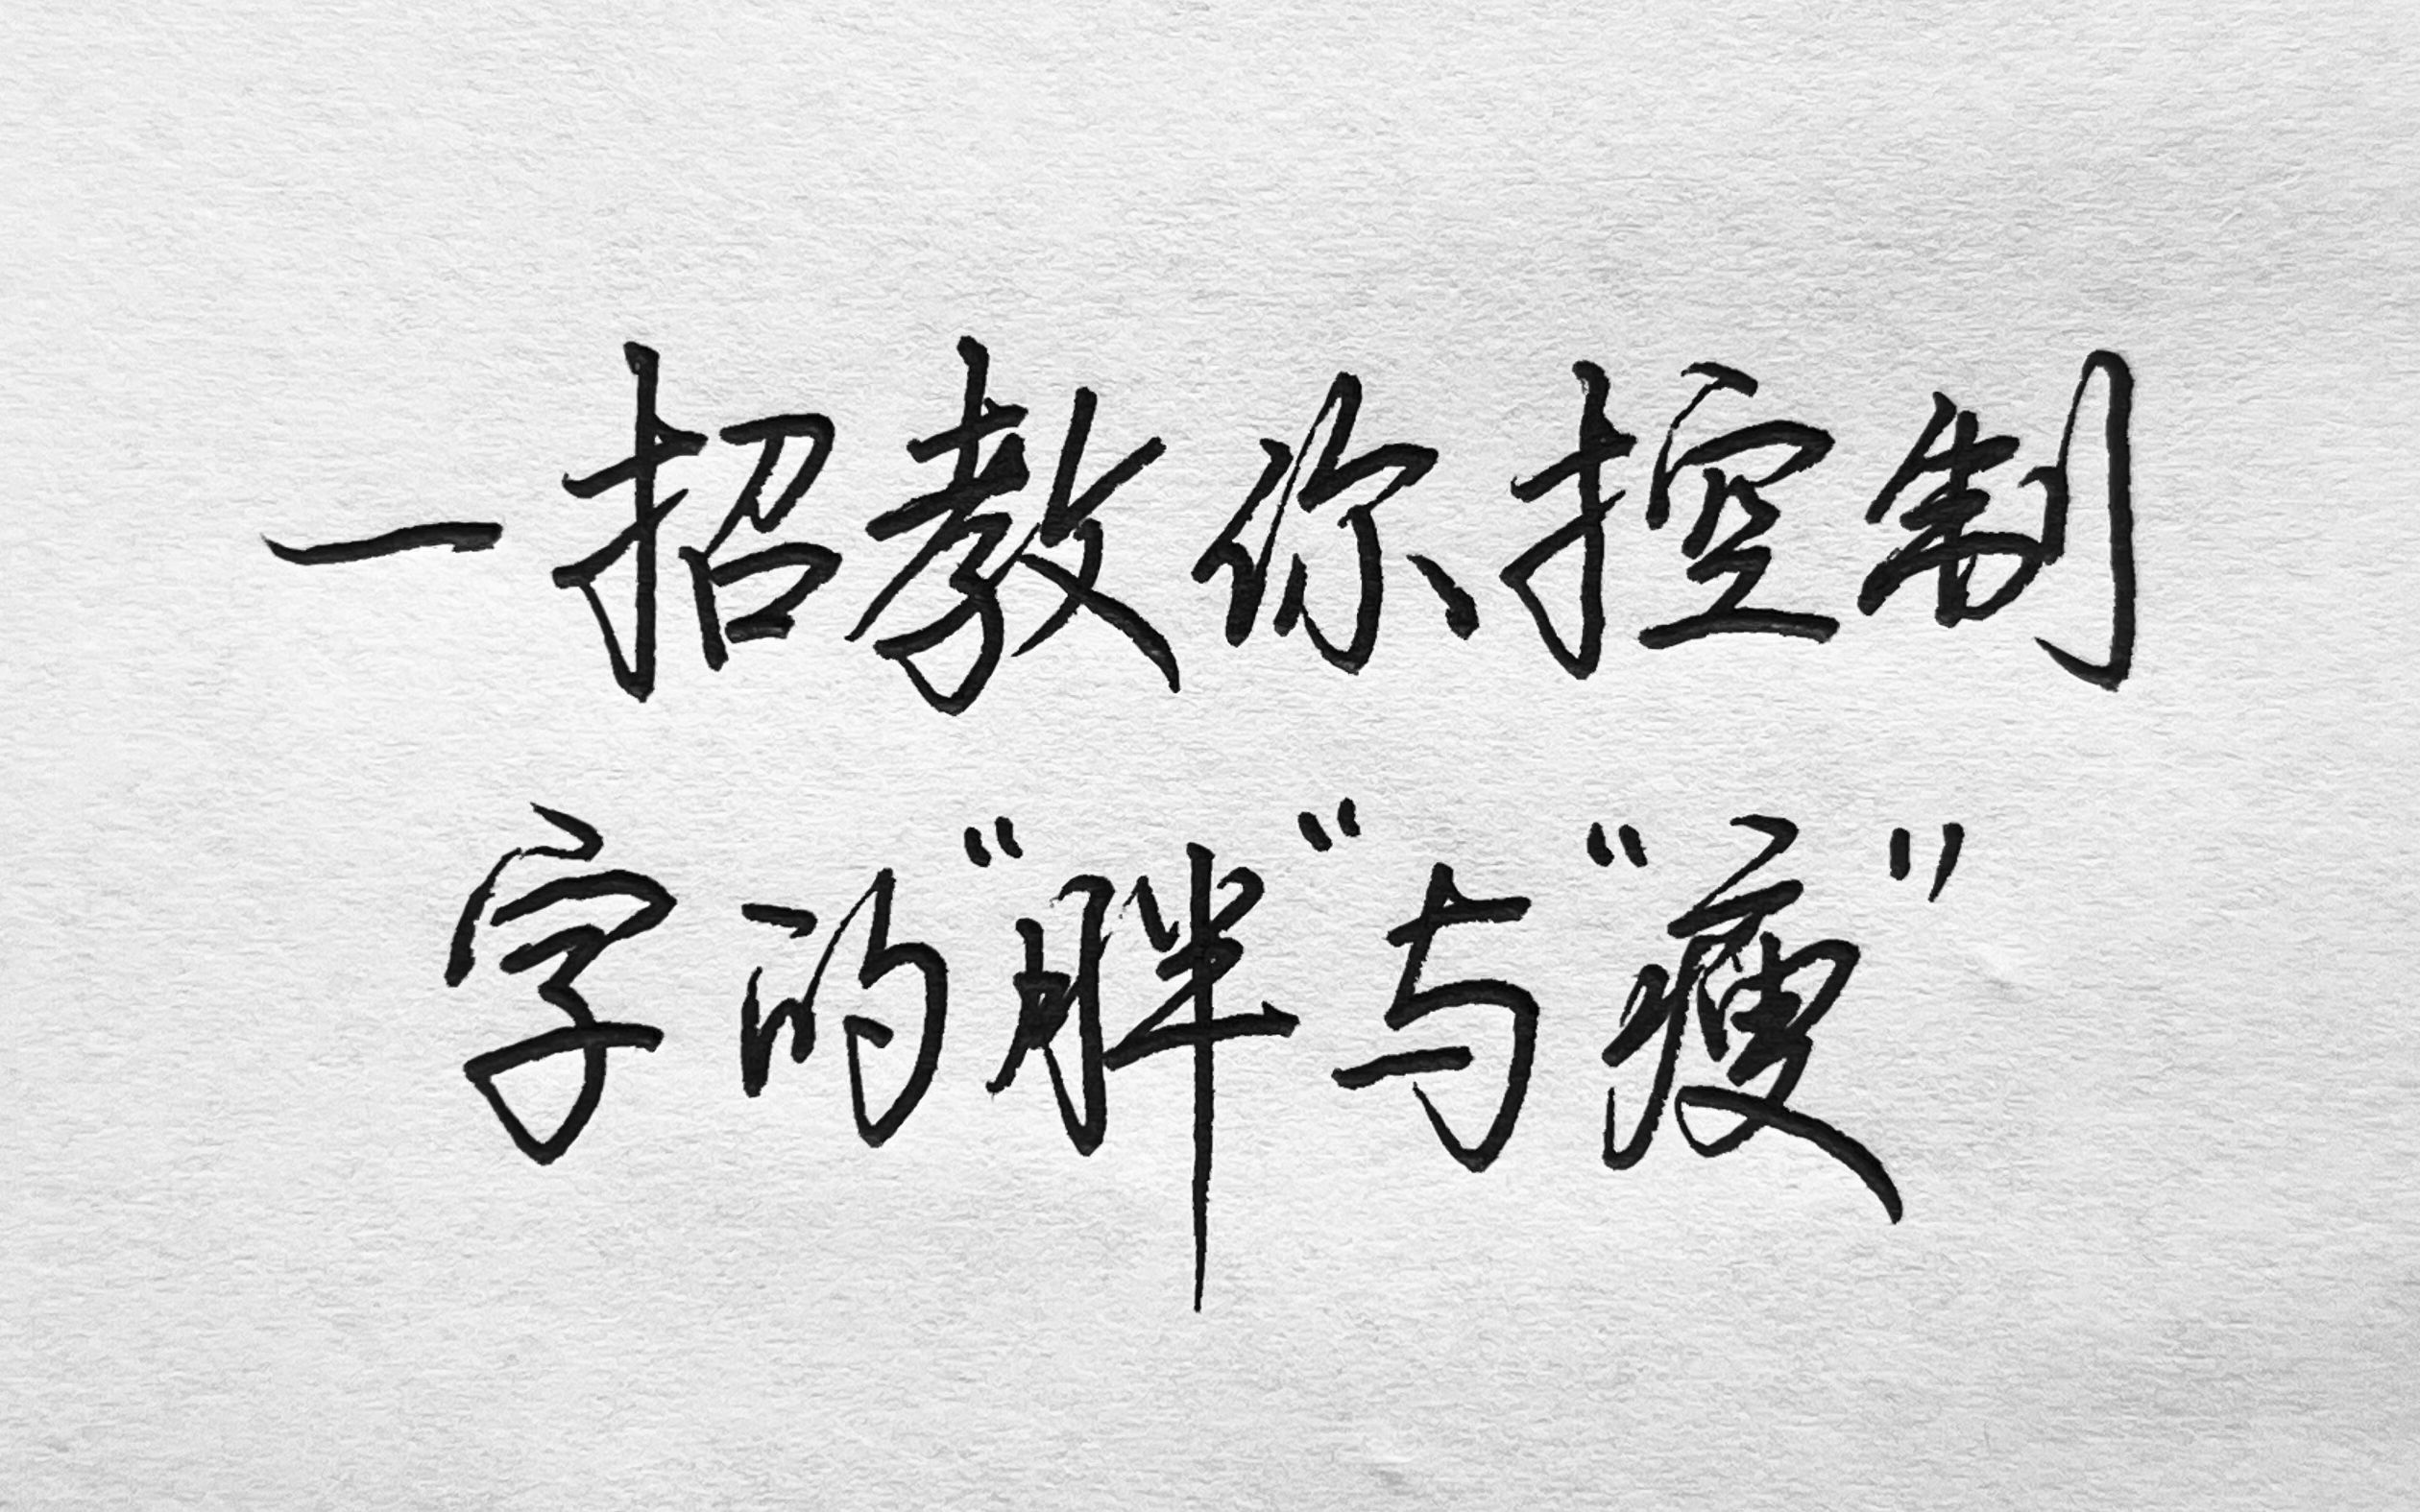 一招教你控制
字的“胖“与“瘦”